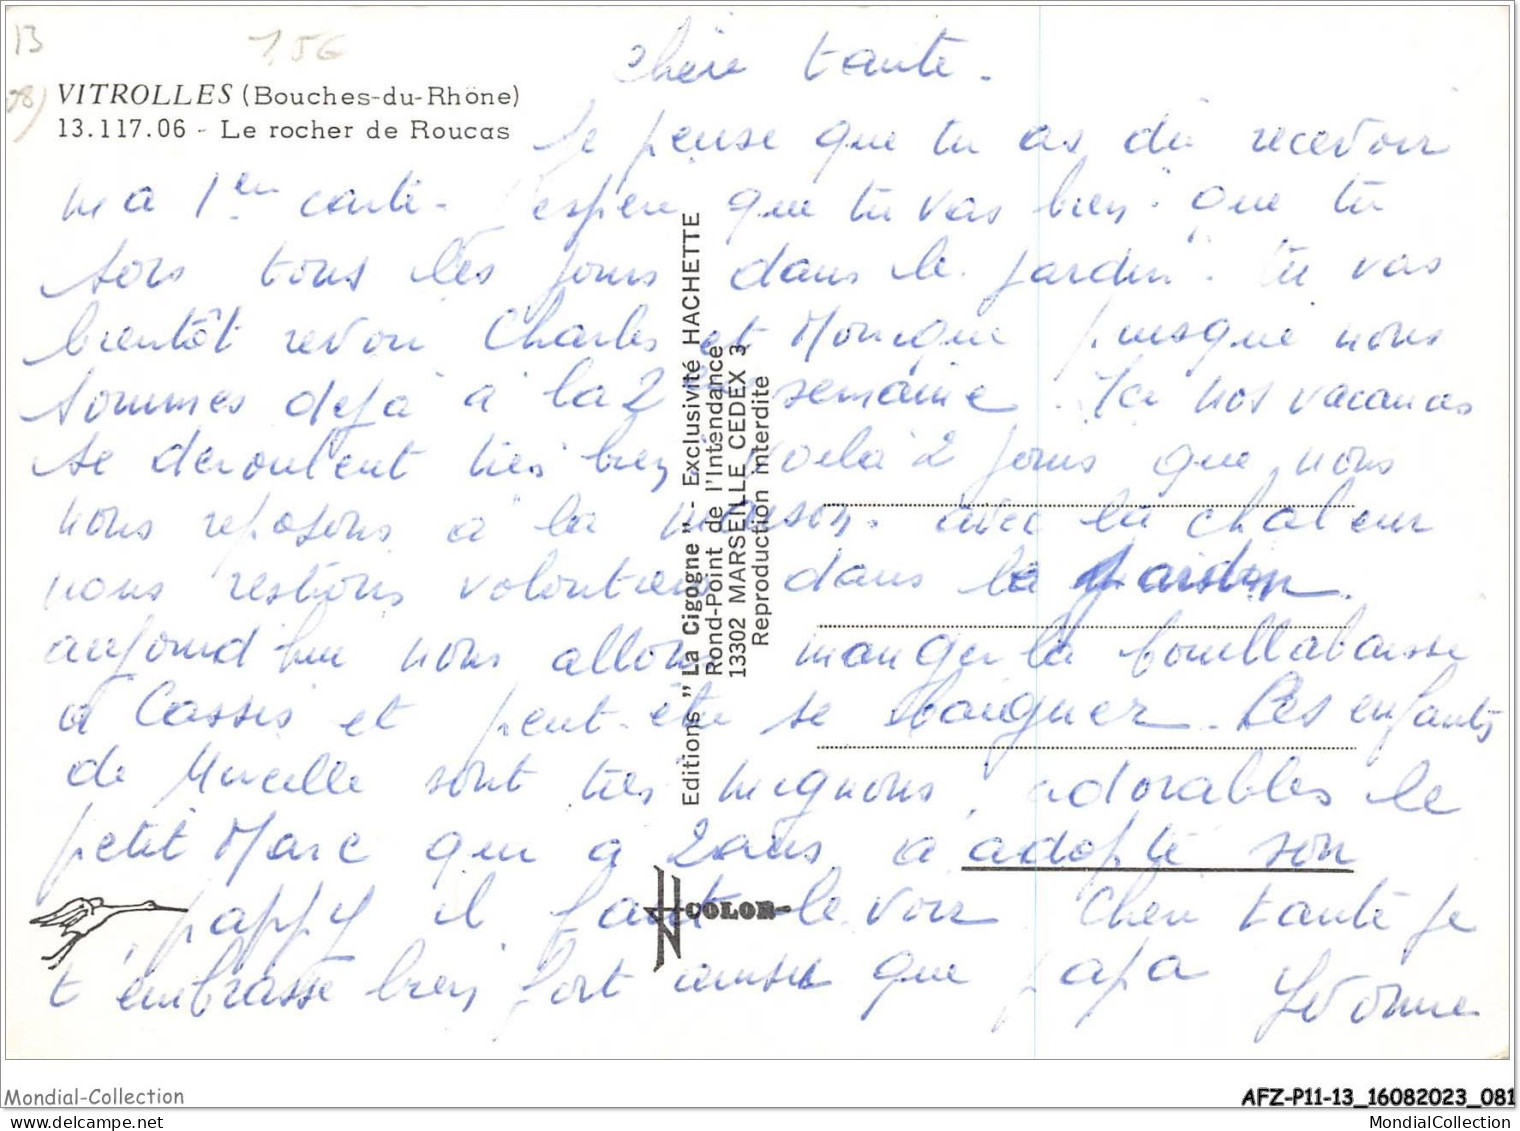 13
1,5€
VITROLLES (Bouches-du-Rhône)
13.117.06 - Le rocher de Roucas
chère tante.
Je pense que tu as dû recevoir
ma 1er carte. J'espère que tu vas bien. que tu
sors tous les jours dans le jardin. tu vas
bientôt revoir Charles et Monique puisque nous
sommes déjà à la 2ème semaine. Ici nos vacances
se déroulent très bien, voilà 2 jours que nous
nous reposons à la maison. avec la chaleur
nous restions volontiers dans le jardin.
aujourd'hui nous allons manger la bouillabaisse
à Cassis et peut-être se baigner. Les enfants
de Mireille sont très mignons, adorables le
petit Marc qui a 2 ans, a adopté son
pappy il faut le voir Chère tante je
t'embrasse bien fort ainsi que papa Yvonne
Editions "La Cigogne" - Exclusivité HACHETTE
Rond-Point de l'Intendance
13302 MARSEILLE CEDEX 3
Reproduction interdite
COLOR
Mondial-Collection
MondialCollection
AFZ-P11-13_16082023_081
MondialCollection